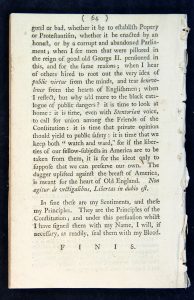 ( 66 )
good or bad, whether it be to establish Popery
or Protestantism, whether it be enacted by an
honest, or by a corrupt and abandoned Parlia-
ment; when I see men that were pensioned in
the reign of good old George II. pensioned in
this, and for the same reasons; when I hear
of others hired to root out the very idea of
public virtue from the minds, and tear benevo-
lence from the hearts of Englishmen; when
I reflect, but why add more to the black cata-
logue of public dangers? it is time to look at
home: it is time, even with Stentorian voice,
to call for union among the Friends of the
Constitution: it is time that private opinion
should yield to public safety: it is time that we
keep both "watch and ward," for if the liber-
ties of our fellow-subjects in America are to be
taken from them, it is for the ideot only to
suppose that we can preserve our own. The
dagger uplifted against the breast of America,
is meant for the heart of Old England. Non
agitur de vectigalibus, Libertas in dubio est.
In fine these are my Sentiments, and these
my Principles. They are the Principles of the
Constitution; and under this persuasion whilst
I have signed them with my Name, I will, if
necessary, as readily, seal them with my Blood.
F I N I S.